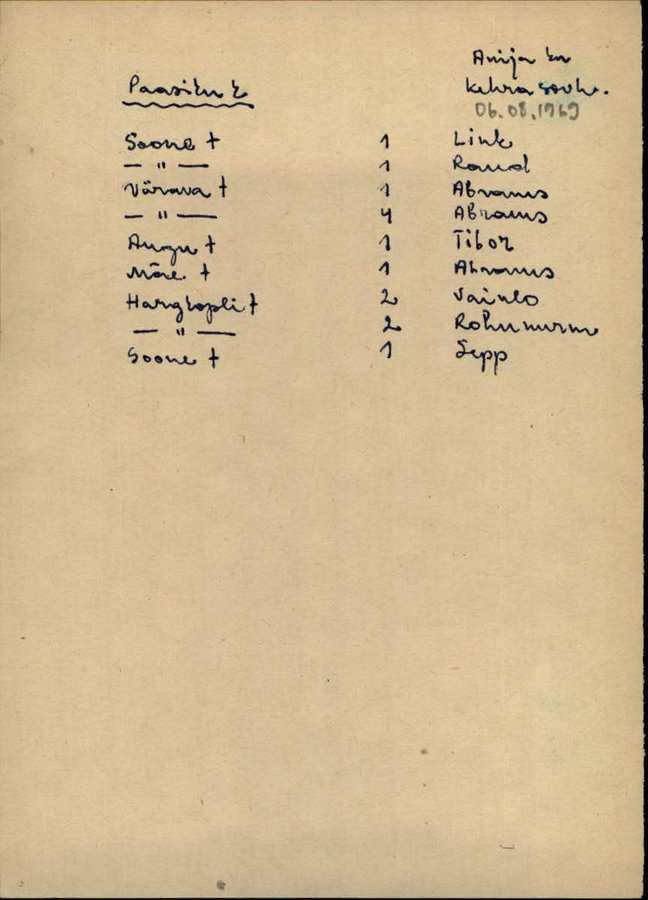 Anija kn
Paasiku k
Kehra sovh.
06.08.1969
Soone t 1 Link
— " — 1 Raud
Värava t 1 Abrams
— " — 4 Abrams
Augu t 1 Tibor
Mäe t 1 Abrams
Hargkopli t 2 Vainlo
— " — 2 Rohumurm
Soone t 1 Sepp